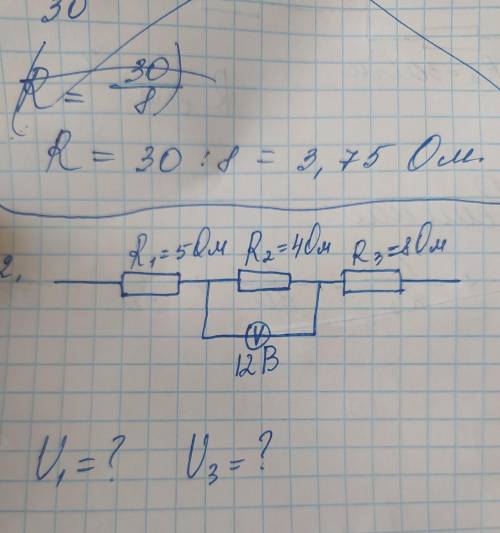 30
(R = 30/8)
R = 30 : 8 = 3,75 Ом.
2. R₁=5Ом R₂=4Ом R₃=8Ом
V
12В
U₁=? U₃=?